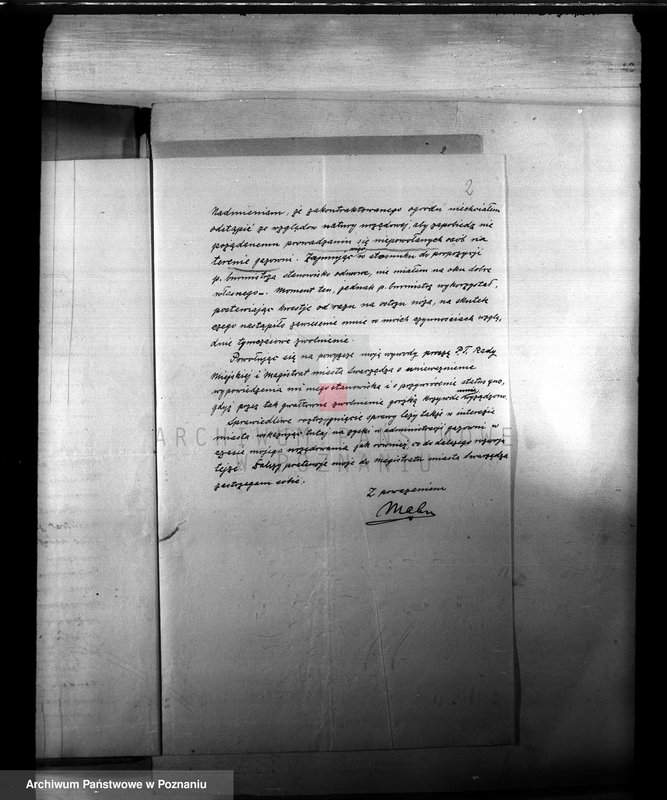 2
2
Nadmieniam, że zakontraktowanego ogrodu niechciałem
odstąpić ze względów natury urzędowej, aby zapobiedz nie
pożądanemu prowadzaniu się niepowołanych osób na
terenie gazowni. Zajmując więc w stosunku do propozycji
p. burmistrza stanowisko odmowne, nie miałem na oku dobra
własnego. Moment ten, jednak p. burmistrz wykorzystał,
postawiając kwestję od razu na ostrzu noża, na skutek
czego nastąpiło zawieszenie mnie w moich czynnościach wzglę,
dnie tymczasowe zwolnienie.
Powołując się na powyższe moje wywody proszę P.T. Radę
Miejskiej i Magistrat miasta Swarzędza o unieważnienie
wypowiedzenia mi mego stanowiska i o przywrócenie status quo,
gdyż przez tak gwałtowne zwolnienie gorzką krzywdę mnie wyrządzono.
Sprawiedliwe rozstrzygnięcie sprawy leży także w interesie
miasta wskazując tutaj na zyski w administracji gazowni w
czasie mojego urzędowania jak również co do dalszego rozwoju
tejże. Dalsze pretensje moje do magistratu miasta Swarzędza
zastrzegam sobie.
Z poważaniem
ARCHIWUM PAŃSTWOWE
W POZNANIU
Archiwum Państwowe w Poznaniu